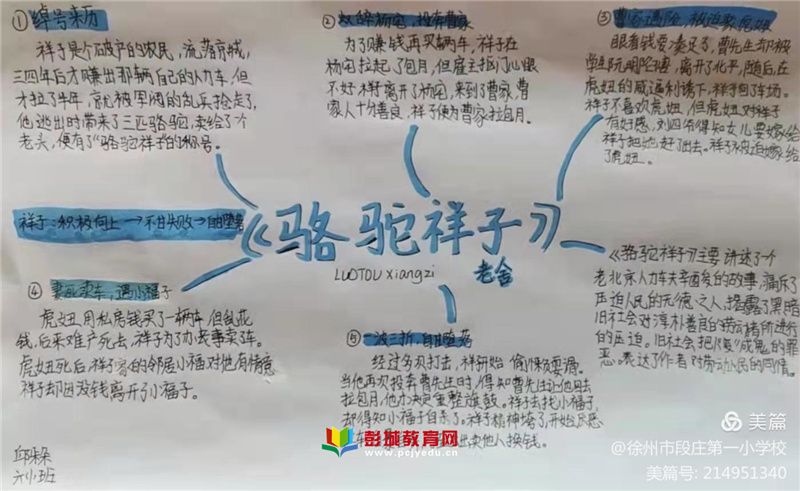 ①绰号来历
祥子是个破产的农民，流落京城，
三四年后才赚出那辆自己的人力车，但
才拉了半年，就被军阀的乱兵抢走了，
他逃出时带来了三匹骆驼，卖给了个
老头，便有了"骆驼祥子"的称号。
②奴辞杨宅，投奔曹家
为了赚钱再买辆车，祥子在
杨宅拉起了包月，但雇主
不好 离开了杨宅，来到了曹家，曹
家人十分善良，祥子便为曹家拉包月。
③曹家遇险，被迫娶虎妞
眼看钱要凑足了，曹先生却被
学生阮明陷害，离开了北平，随后在
虎妞的威逼利诱下，祥子回了车场。
祥子不喜欢虎妞，但虎妞对祥子
有好感，刘四爷得知女儿要嫁给
祥子把她赶了出去。祥子被迫嫁给
了虎妞。
祥子：积极向上→不甘失败→自甘堕落
《骆驼祥子》
LUOTOU xiangzi
老舍
④妻死卖车，遇小福子
虎妞用私房钱买了一辆车 但乱花
钱，后来难产死去，祥子为了办丧事卖车。
虎妞死后，祥子家的邻居小福对他有情意
祥子却因没钱离开了小福子。
⑤一波三折，自甘堕落
经过多次打击，祥子开始 偷懒耍滑。
当他再次投奔曹先生时，得知曹先生让他回去
拉包月，他才决定重整旗鼓。祥子去找小福子，
却得知小福子自杀了。祥子精神垮了，开始
出卖他人换钱。
《骆驼祥子》主要讲述了个
老北京人力车夫辛酸的故事，痛斥了
压迫人民的无德之人，揭露了黑暗
旧社会对淳朴善良的劳动者所进行
的压迫。旧社会把"人"变成"鬼"的罪
恶。表达了作者对劳动人民的同情。
邱朵朵
六(1)班
彭城教育网
www.pcjyedu.cn
美篇
@徐州市段庄第一小学校
美篇号: 214951340